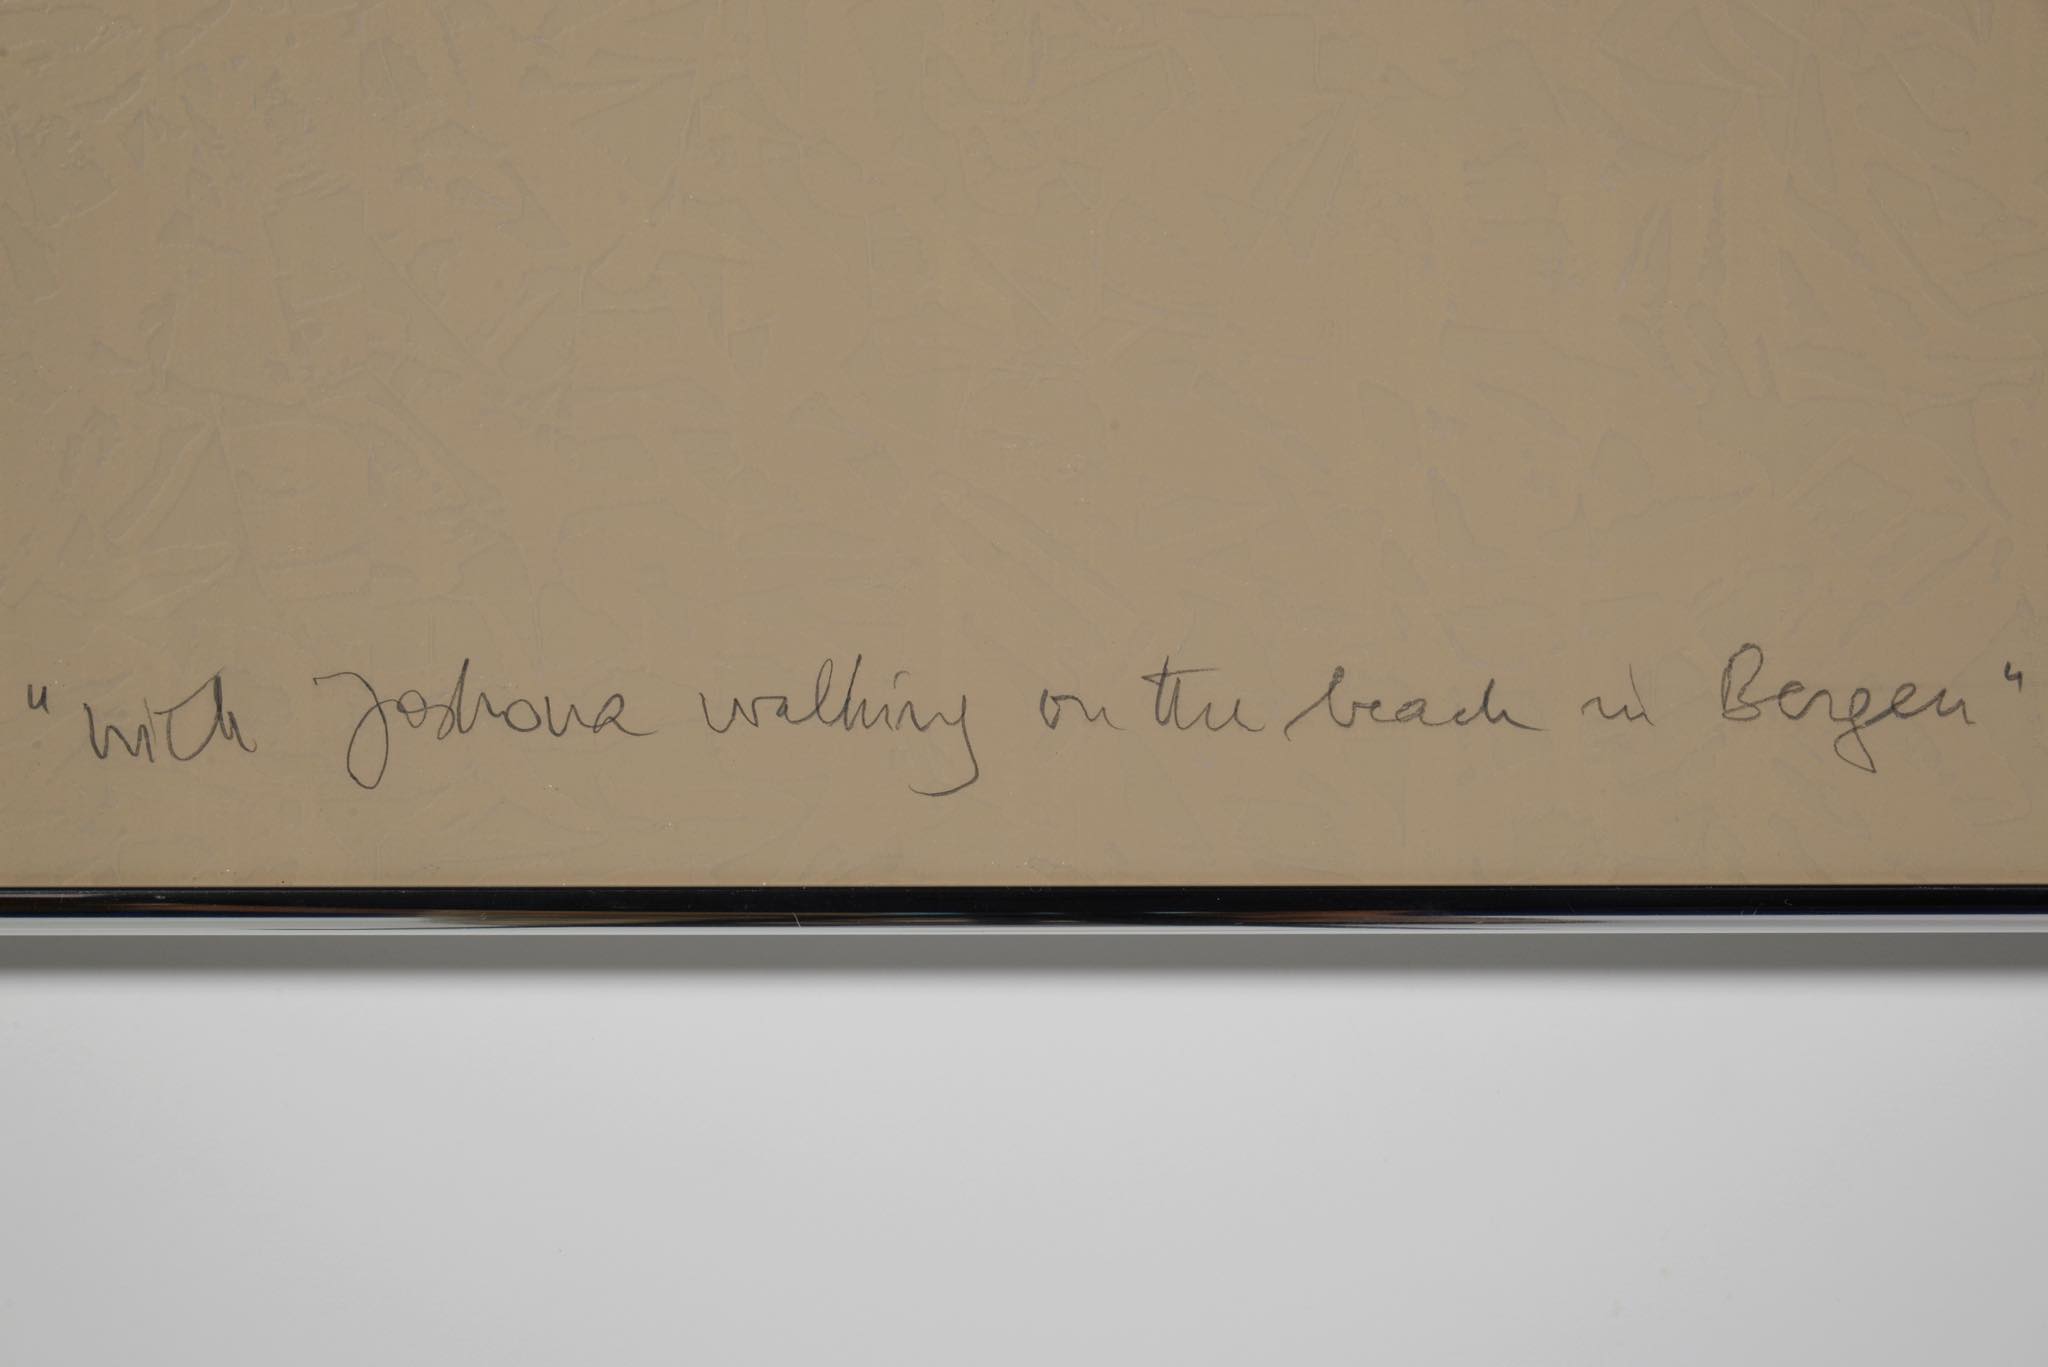 "with Joshova walking on the beach in Bergen"